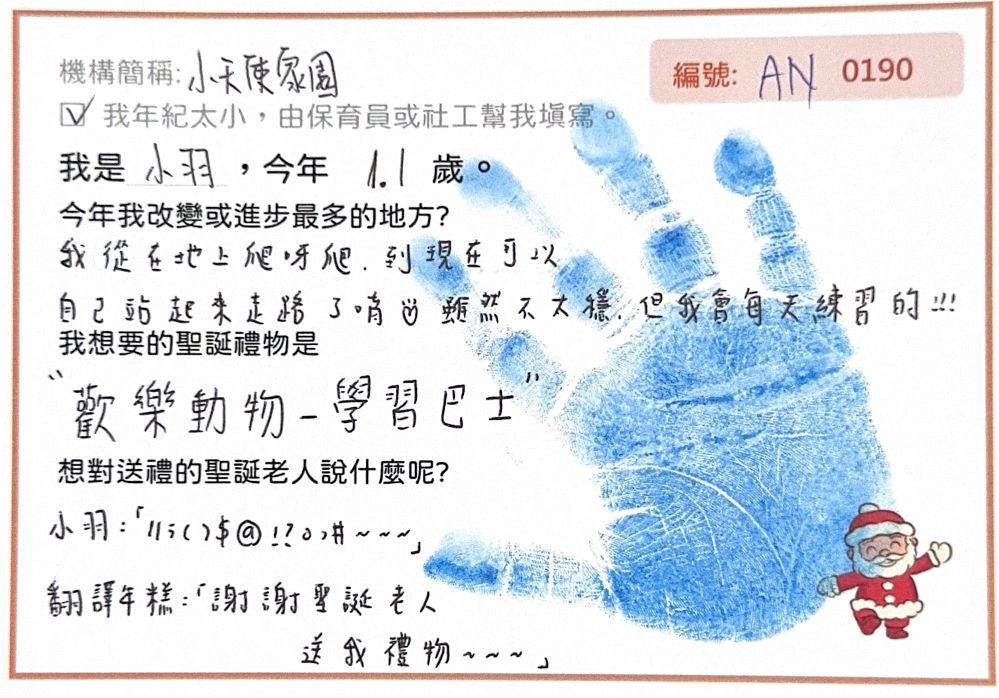 機構簡稱:小天使家園
編號: AN 0190
☑ 我年紀太小，由保育員或社工幫我填寫。
我是 小羽 ，今年 1.1 歲。
今年我改變或進步最多的地方?
我從在地上爬呀爬.到現在可以
自己站起來走路了唷 雖然不太穩.但我會每天練習的!!!
我想要的聖誕禮物是
"歡樂動物-學習巴士"
想對送禮的聖誕老人說什麼呢?
小羽:「//;()$@!?。,#~~~」
翻譯年糕:「謝謝聖誕老人
送我禮物~~~」